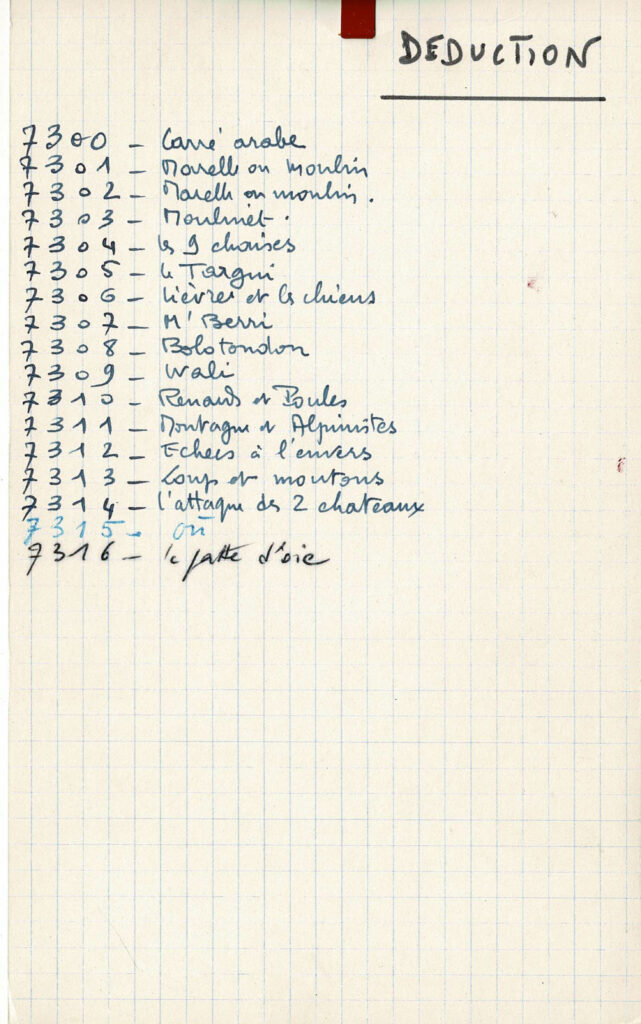 DEDUCTION
7300 - Carré arabe
7301 - Marelle ou moulin
7302 - Marelle ou moulin.
7303 - Moulinet.
7304 - les 9 chaises
7305 - le Targui
7306 - Lièvres et les chiens
7307 - M'Berri
7308 - Bolotondon
7309 - Wali
7310 - Renards et Poules
7311 - Montagne et Alpinistes
7312 - Echecs à l'envers
7313 - Loup et moutons
7314 - l'attaque des 2 chateaux
7315 - 
7316 - la patte d'oie